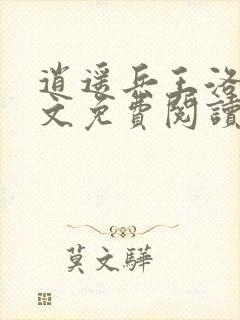 逍遥兵王洛
文免費閱讀
莫文驊